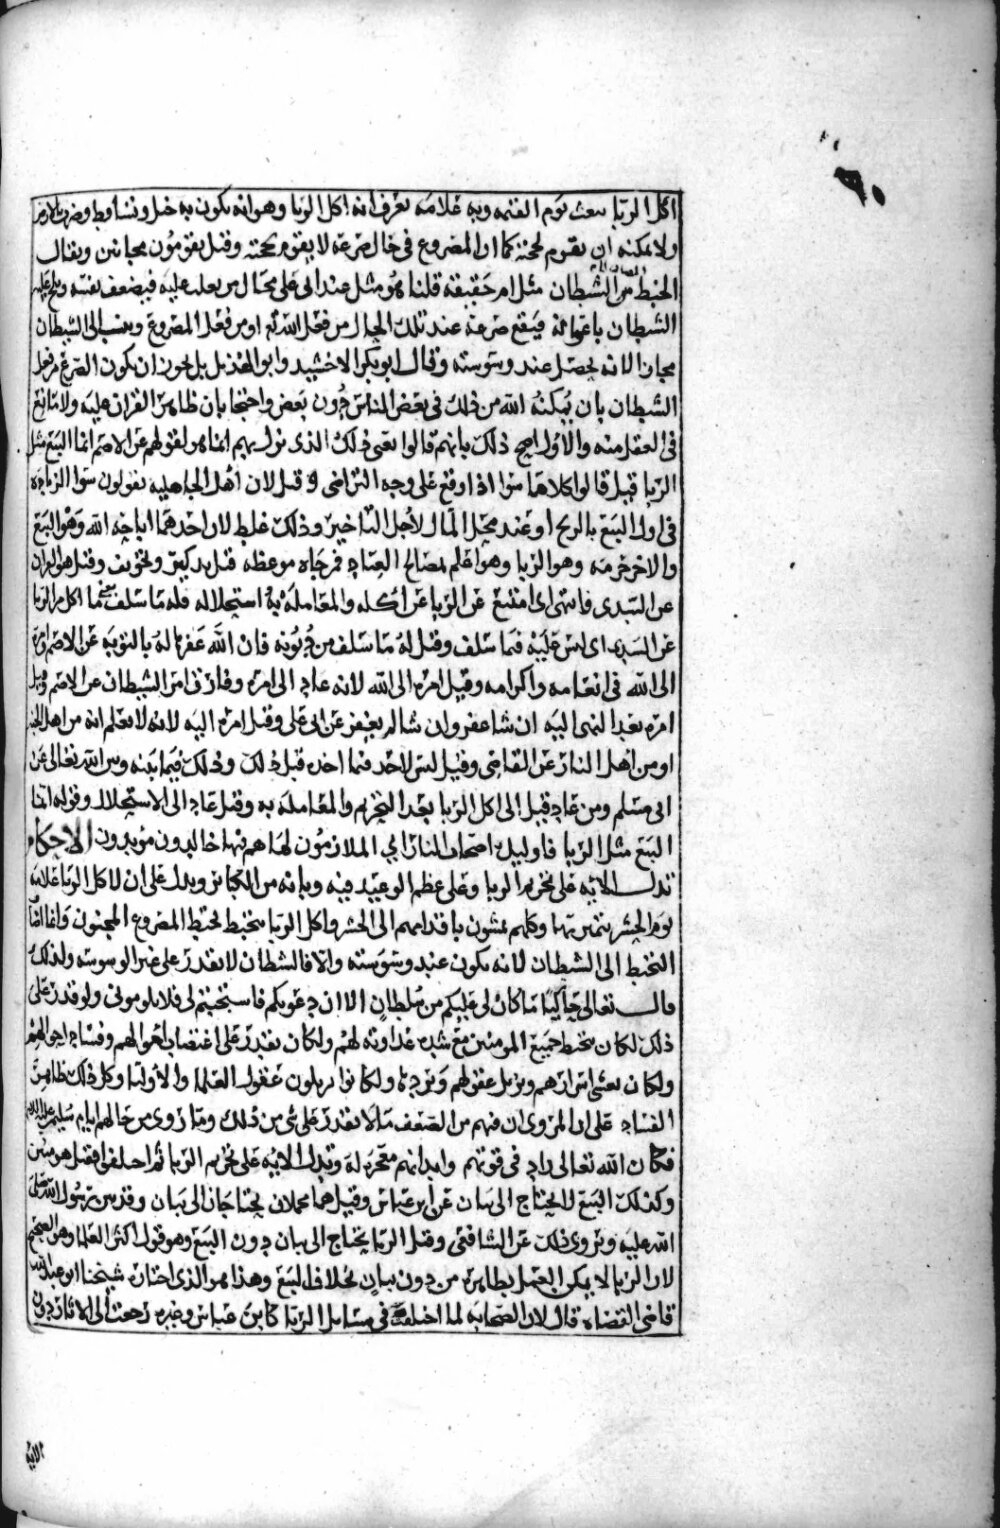 اكل الربا يبعث يوم القيمه وبه علامه يعرف انه اكل الربا وهو انه يكون به خبل وتساقط وضرب
ولا يمكنه ان يقوم لمحنته كما ان المصروع في حال صرعه لا يقوم لمحنته وقيل يقومون مجانين ويقال
الخبط من الشيطان مثل ام حقيقة قلنا هو مثل عند ابي علي محال من يغلب عليه فيضعف نفسه ويلح عليه
الشيطان باغوائه فيقع صرعه عند تلك الحال من فعل الله تع او من فعل المصروع وينسب الى الشيطان
مجازا لانه يحصل عند وسوسته وقال ابو بكر الاخشيد وابو الهذيل بل يجوز ان يكون الصرع من فعل
الشيطان بان يمكنه الله من ذلك في بعض الناس دون بعض واحتجا بان ظاهر القران عليه ولا مانع
في العقل منه والاول اصح ذلك بانهم قالوا يعني ذلك الذي نزل بهم انما هو لقولهم عن الاصم انما البيع مثل
الربا قيل قالوا كلاهما سوا اذا وقع على وجه التراضي وقيل لان اهل الجاهليه يقولون سوا الزياده
في اول البيع بالربح او عند محل المال لاجل التاخير وذلك غلط لان احدهما اباحه الله وهو البيع
والاخر حرمه وهو الربا وهو اعلم بمصالح العباد فمن جاه موعظه قيل تذكير وتخويف وقيل هو القران
عن السدي فانتهى اي امتنع عن الربا عن اكله والمعاملة به استحلاله فله ما سلف يعني ما اكل من الربا
عن السدي اي ليس عليه فيما سلف وقيل له ما سلف من ذنوبه فان الله غفرها له بالتوبه عن الاصم وامره
الى الله في انعامه واكرامه وقيل امره الى الله لانه عاد الى امره وفارق امر الشيطان عن الاصم وقيل
امره بعد النهي اليه ان شا غفر وان شا لم يغفر عن ابي علي وقيل امره اليه لانه لا يعلم انه من اهل الجنه
او من اهل النار عن القاضي وقيل ليس لاحد فيما اخذه قبل ذلك وذلك فيما بينه وبين الله تعالى عن
ابي مسلم ومن عاد قيل الى اكل الربا بعد التحريم والمعاملة به وقيل عاد الى الاستحلال وقوله انما
البيع مثل الربا فاوليك اصحاب النار اي الملازمون لها هم فيها خالدون مؤبدون الاحكام
تدل الايه على تحريم الربا وعلى عظم الوعيد فيه وبانه من الكبائر ويدل على ان لاكل الربا علامه
يوم الحشر يتميز بها وكلهم يمشون باقدامهم الى الحشر واكل الربا يتخبط تخبط المصروع المجنون وانما اضاف
التخبط الى الشيطان لانه يكون عند وسوسته والا فالشطان لا يقدر على غير الوسوسه ولذلك
قال تعالى حاكيا ما كان لي عليكم من سلطان الا ان دعوتكم فاستجبتم لي فلا تلوموني ولو قدر على
ذلك لكان يتخبط جميع المومنين مع شدة عداوته لهم ولكان يقدر على اغتصاب اموالهم وفساد احوالهم
ولكان يفشي اسرارهم ويزيل عقولهم ولكانوا يزيلون عقول العلما والاوليا وكل ذلك ظاهر
الفساد على ان المروي ان فيهم من الضعف ما لا يقدر على شي من ذلك وما روي من حالهم ايام سليمن عليه السلام
فكان الله تعالى زاد في قوتهم وابدانهم معجزه له وتدل الايه على تحريم الربا ثم اختلفوا فقيل هو مبين
وكذلك البيع لا يحتاج الى بيان عن ابن عباس وقيل هما مجملان يحتاجان الى بيان وقد بين رسول الله صلى
الله عليه ويروى ذلك عن الشافعي وقيل الربا يحتاج الى بيان دون البيع وهو قول اكثر العلما وهو الصحيح
لان الربا لا يمكن العمل بظاهره من دون بيان بخلاف البيع وهذا هو الذي اختاره شيخنا ابو عبد الله
قاضي القضاه قال لان الصحابه لما اختلفت في مسايل الربا كابن عباس وغيره رجعت الى الاثار دون
الايه